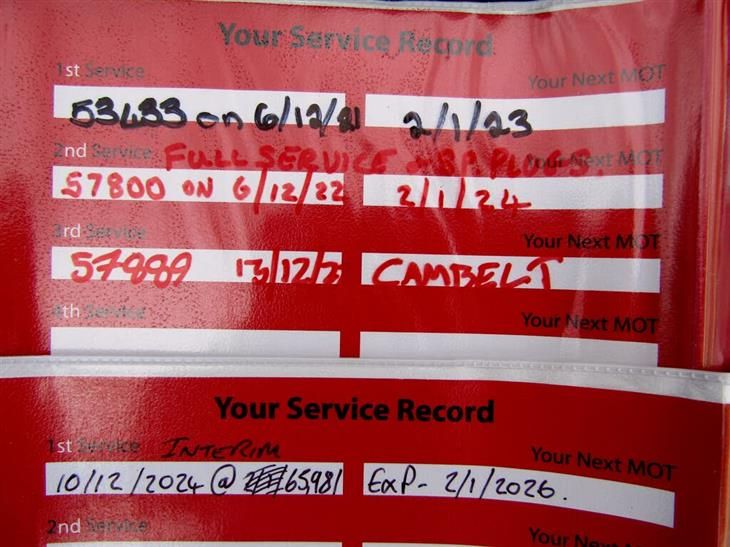 Your Service Record
1st Service Your Next MOT
53433 on 6/12/21 2/1/23
2nd Service Your Next MOT
FULL SERVICE + SP. PLUGS.
57800 ON 6/12/22 2/1/24
3rd Service Your Next MOT
57889 13/12/2 CAMBELT
4th Service Your Next MOT
Your Service Record
1st Service INTERIM Your Next MOT
10/12/2024 @ 65981 Exp- 2/1/2026.
2nd Service Your Next MOT